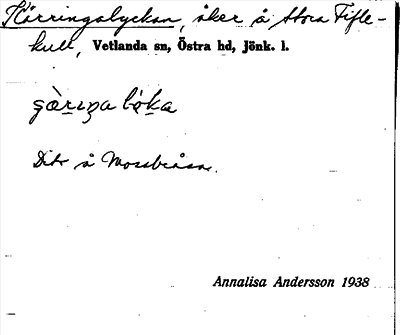 Kärringalyckan, åker å Stora Fifle-
kull, Vetlanda sn, Östra hd, Jönk. l.
Dito å Mossbråsa.
Annalisa Andersson 1938